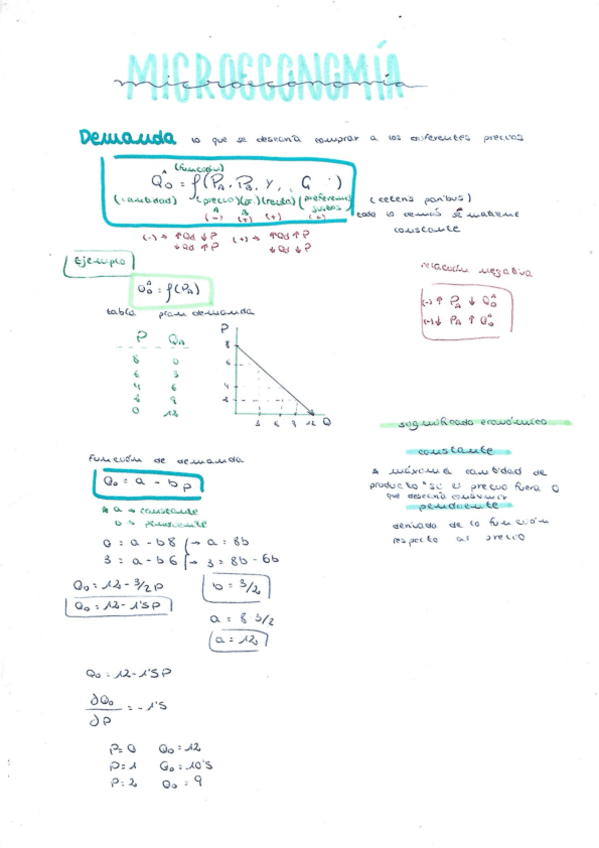 MICROECONOMÍA
microeconomía
Demanda lo que se desearía comprar a los diferentes precios
(función)
Q_D^A = f(P_A, P_B, Y, , G )
(cantidad) (precio A) (pr. B) (renta) (preferencias, gustos) (ceteris paribus)
(-) (+) (+) (+) todo lo demás se mantiene
constante
(-) → ↑Qd ↓P (+) → ↑Qd ↑P
↓Qd ↑P ↓Qd ↓P
Ejemplo
Q_D^A = f(P_A)
relación negativa
(-) ↑ P_A ↓ Q_D^A
(-) ↓ P_A ↑ Q_D^A
tabla demanda
P Q_A
8 0
6 3
4 6
2 9
0 12
P
8
6
4
2
3 6 9 12 Q
significado económico
constante
máxima cantidad de
producto "si el precio fuera 0
que desearía consumir
pendiente
derivada de la función
respecto al precio
Función de demanda
Q_D = a - bp
a → constante
b → pendiente
0 = a - b8 → a = 8b
3 = a - b6 → 3 = 8b - 6b
Q_D = 12 - 3/2 P
b = 3/2
Q_D = 12 - 1'5P
a = 8 3/2
a = 12
Q_D = 12 - 1'5P
∂Q_D
∂P
= -1'5
P = 0 Q_D = 12
P = 1 Q_D = 10'5
P = 2 Q_D = 9